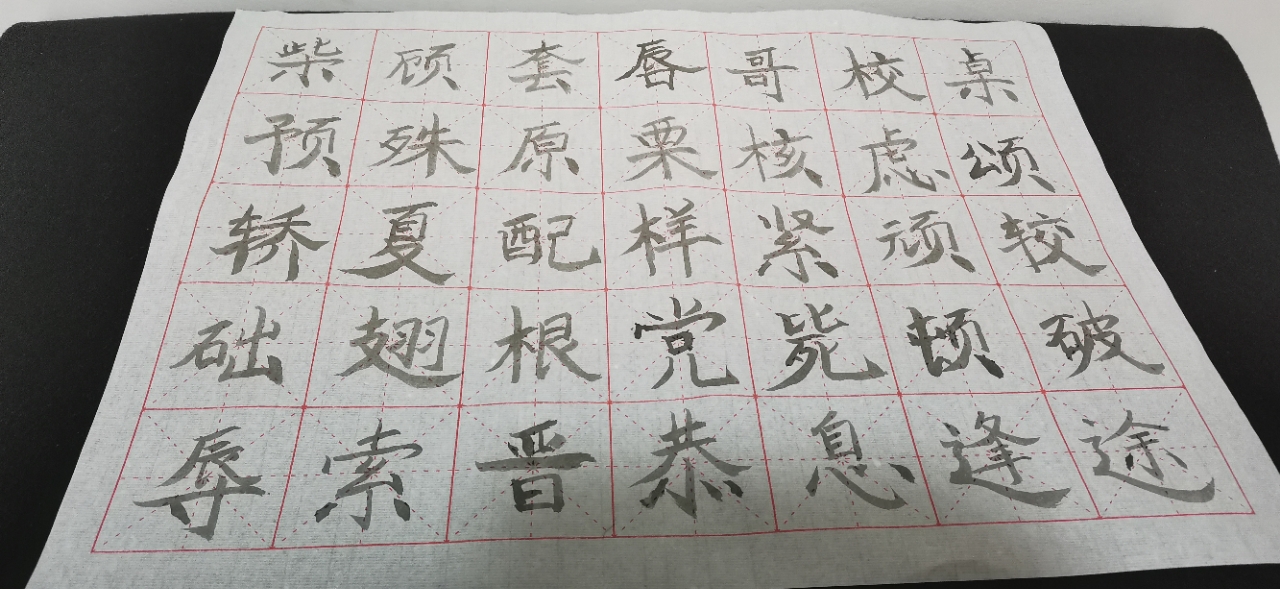 柴顾套唇哥校桌
预殊原栗核虑颂
轿夏配样紧顽较
础翅根党毙顿破
辱索晋恭息逢途